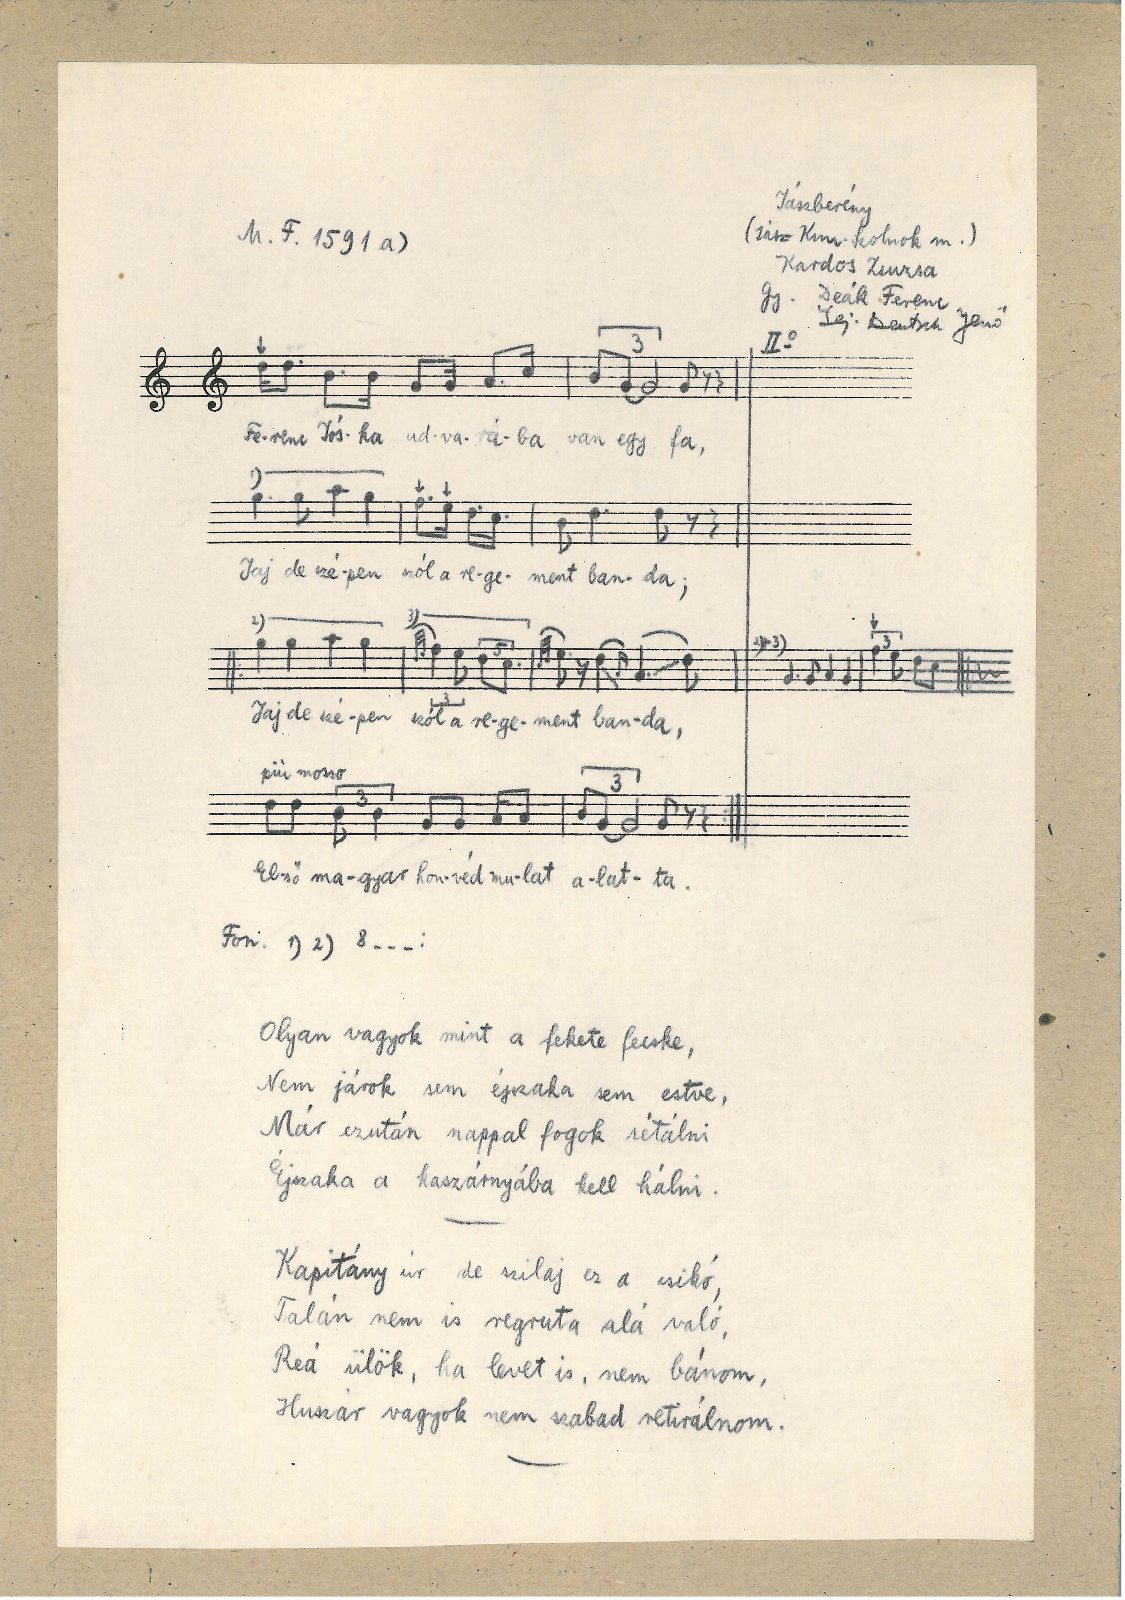 M. F. 1591 a)
Jászberény
(Jász Kun-Szolnok m.)
Kardos Zsuzsa
Gy. Deák Ferenc
Lej. Deutsch Jenő
IIº
3
Fe-renc Jós-ka ud-va-rá-ba van egy fa,
1)
Jaj de szé-pen szól a re-ge-ment ban-da;
2) 3) 2)-3) 3
3
Jaj de szé-pen szól a re-ge-ment ban-da,
più mosso
3 3
El-ső ma-gyar hon-véd mu-lat a-lat-ta.
Fon. 1) 2) 8---:
Olyan vagyok mint a fekete fecske,
Nem járok sem éjszaka sem estve,
Már ezután nappal fogok sétálni
Éjszaka a kaszárnyába kell hálni.
Kapitány úr de szilaj ez a csikó,
Talán nem is regruta alá való,
Reá ülök, ha levet is, nem bánom,
Huszár vagyok nem szabad retirálnom.